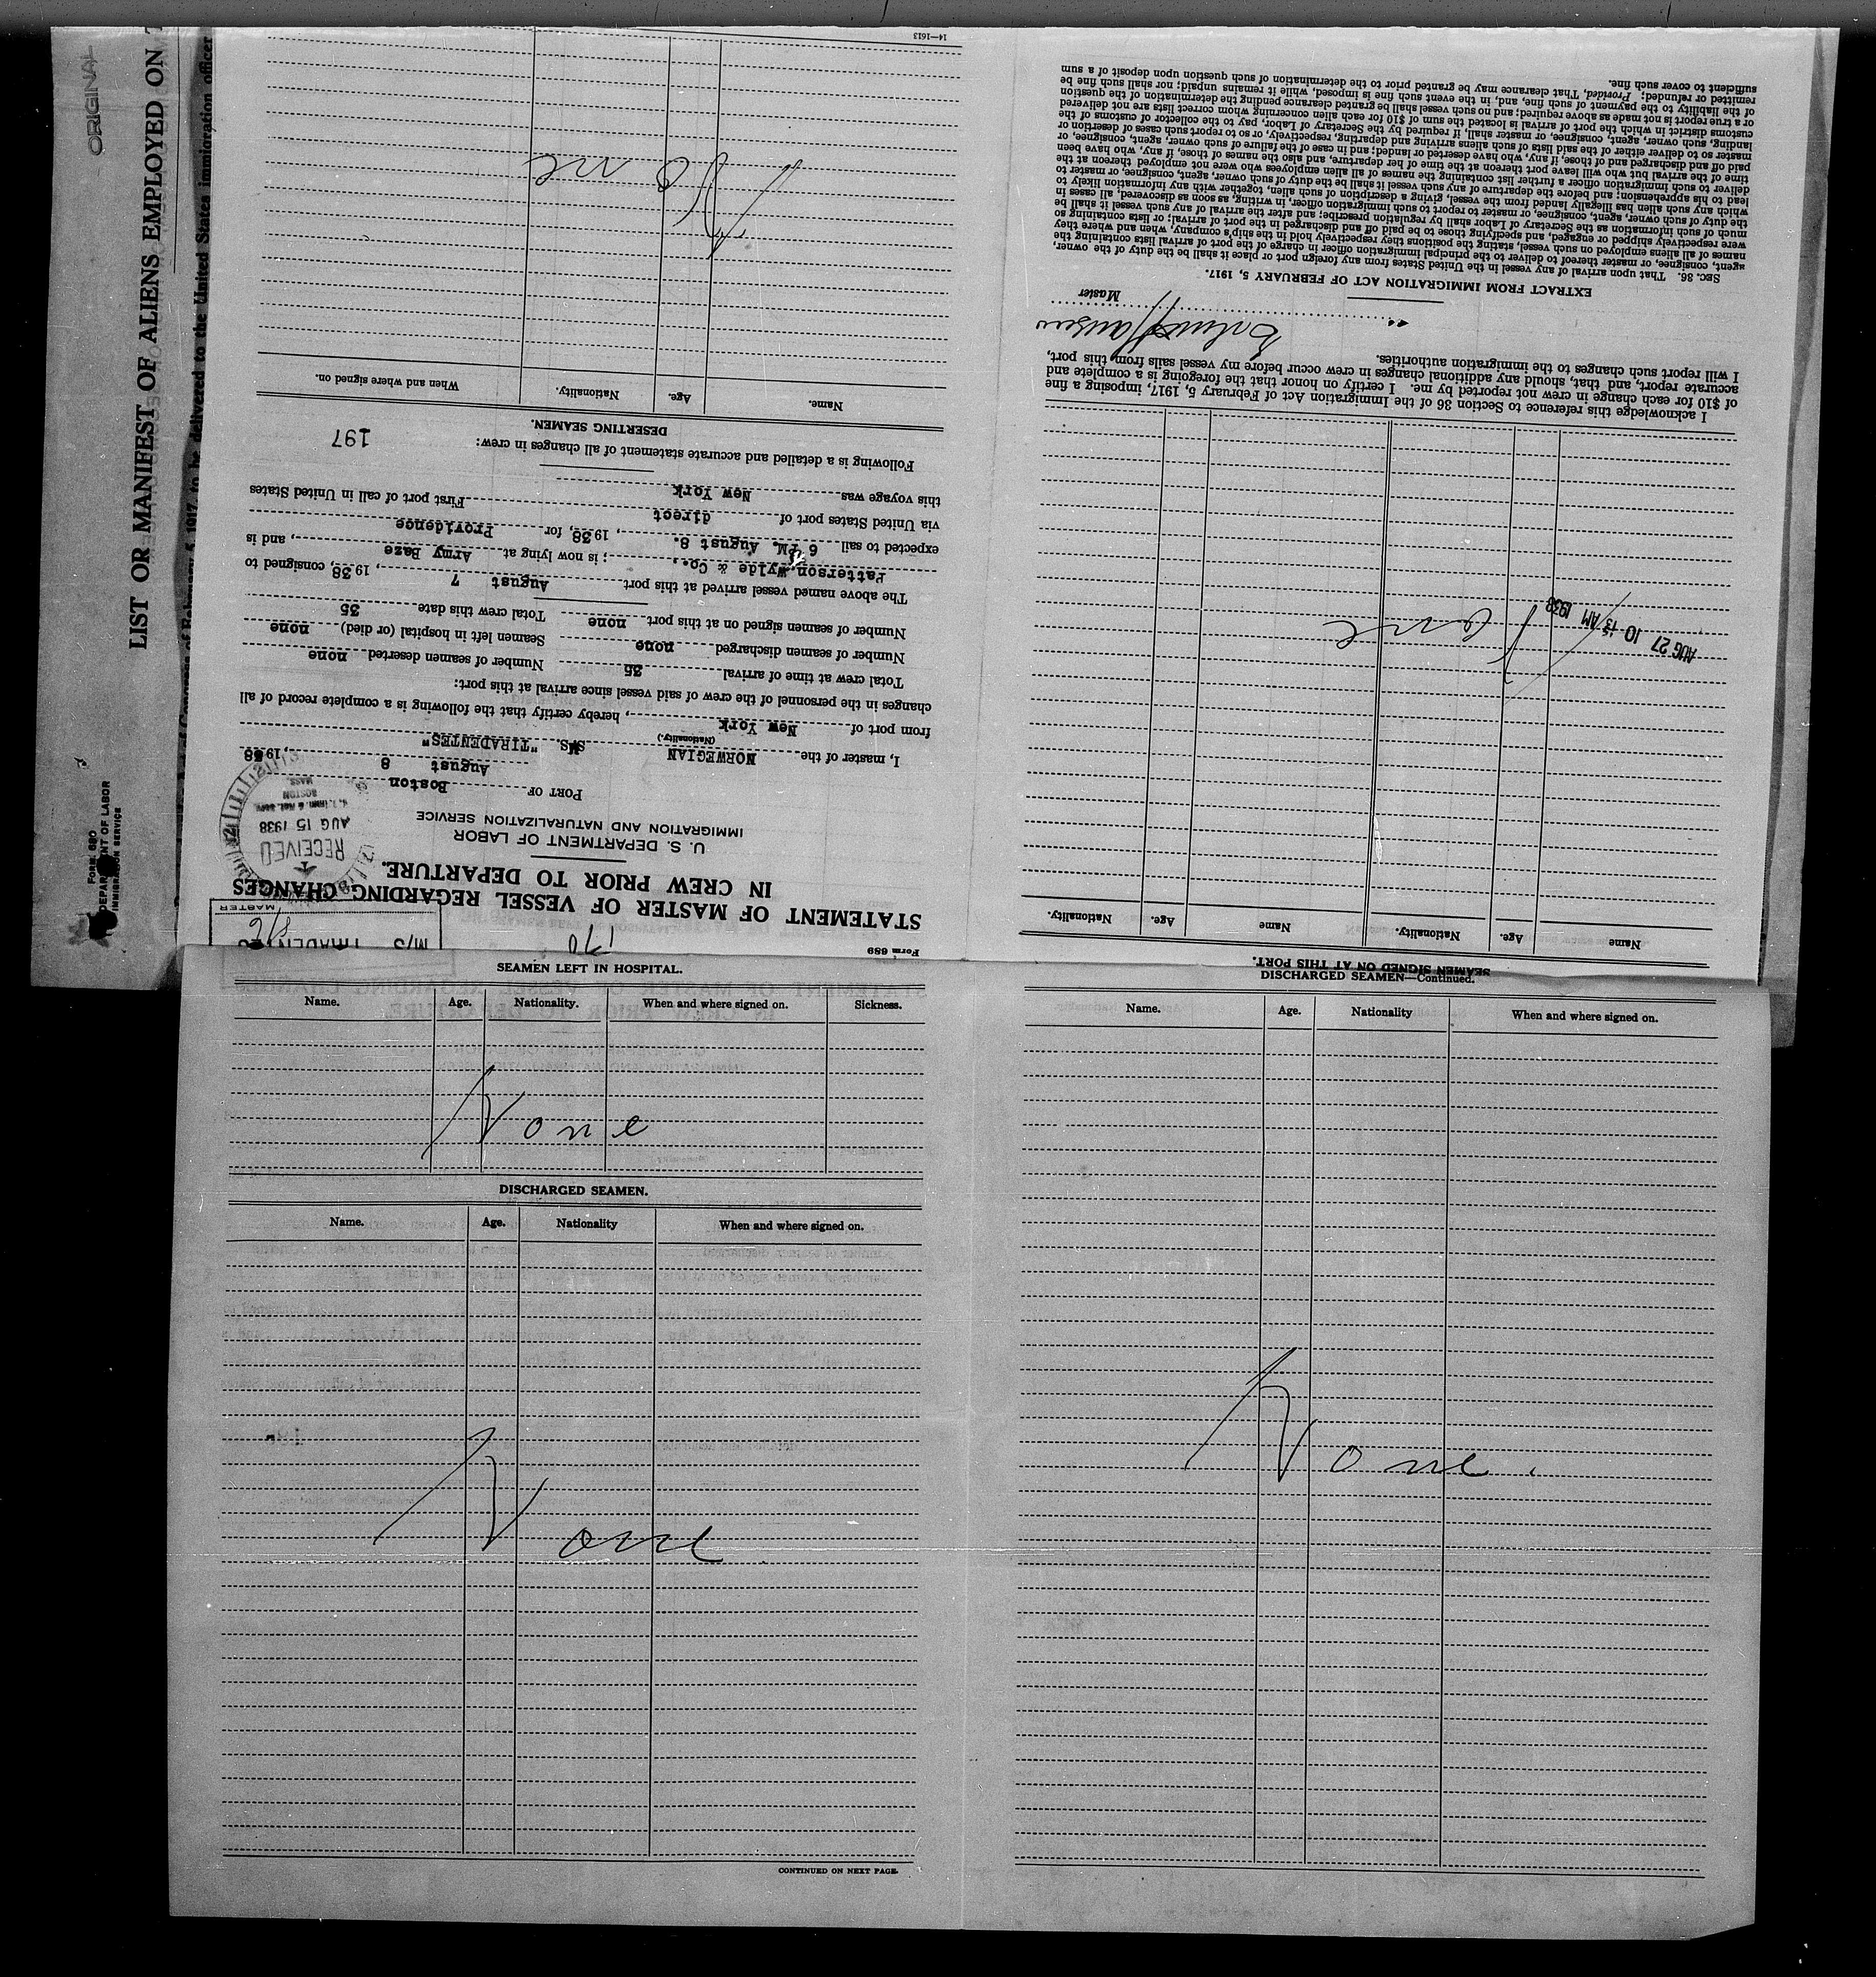 ORIGINAL
LIST OR MANIFEST OF ALIENS EMPLOYED ON
to be delivered to the United States immigration officer
FORM 680
DEPARTMENT OF LABOR
IMMIGRATION SERVICE
Form 689
170
M/S TIRADENTES
MASTER
STATEMENT OF MASTER OF VESSEL REGARDING CHANGES
IN CREW PRIOR TO DEPARTURE.
U. S. DEPARTMENT OF LABOR
IMMIGRATION AND NATURALIZATION SERVICE
RECEIVED
AUG 15 1938
BOSTON
MASS.
PORT OF Boston
August 8, 1938
I, master of the NORWEGIAN M/S. "TIRADENTES"
(Nationality.)
from port of New York, hereby certify that the following is a complete record of all
changes in the personnel of the crew of said vessel since arrival at this port:
Total crew at time of arrival 35 Number of seamen deserted none
Number of seamen discharged none Seamen left in hospital (or died) none
Number of seamen signed on at this port none Total crew this date 35
The above named vessel arrived at this port August 7, 1938, consigned to
Patterson, Wylde & Co.,; is now lying at Army Baze, and is
expected to sail 6 PM. August 8., 1938, for Providence
via United States port of direct
this voyage was New York First port of call in United States
Following is a detailed and accurate statement of all changes in crew:
197
DESERTING SEAMEN.
Name. Age. Nationality. When and where signed on.
None
14—1613
SEAMEN SIGNED ON AT THIS PORT.
Name Age. Nationality. Name Age. Nationality.
AUG 27 10 15 AM 1938
None
I acknowledge this reference to Section 36 of the Immigration Act of February 5, 1917, imposing a fine
of $10 for each change in crew not reported by me. I certify on honor that the foregoing is a complete and
accurate report, and that, should any additional changes in crew occur before my vessel sails from this port,
I will report such changes to the immigration authorities.
Master
EXTRACT FROM IMMIGRATION ACT OF FEBRUARY 5, 1917.
SEC. 36. That upon arrival of any vessel in the United States from any foreign port or place it shall be the duty of the owner,
agent, consignee, or master thereof to deliver to the principal immigration officer in charge of the port of arrival lists containing the
names of all aliens employed on such vessel, stating the positions they respectively hold in the ship's company, when and where they
were respectively shipped or engaged, and specifying those to be paid off and discharged in the port of arrival; or lists containing so
much of such information as the Secretary of Labor shall by regulation prescribe; and after the arrival of any such vessel it shall be
the duty of such owner, agent, consignee, or master to report to such immigration officer, in writing, as soon as discovered, all cases in
which any such alien has illegally landed from the vessel, giving a description of such alien, together with any information likely to
lead to his apprehension; and before the departure of any such vessel it shall be the duty of such owner, agent, consignee, or master to
deliver to such immigration officer a further list containing the names of all alien employees who were not employed thereon at the
time of the arrival but who will leave port thereon at the time of her departure, and also the names of those, if any, who have been
paid off and discharged and of those, if any, who have deserted or landed; and in case of the failure of such owner, agent, consignee, or
master so to deliver either of the said lists of such aliens arriving and departing, respectively, or so to report such cases of desertion or
landing, such owner, agent, consignee, or master shall, if required by the Secretary of Labor, pay to the collector of customs of the
customs district in which the port of arrival is located the sum of $10 for each alien concerning whom correct lists are not delivered
or a true report is not made as above required; and no such vessel shall be granted clearance pending the determination of the question
of the liability to the payment of such fine, and, in the event such fine is imposed, while it remains unpaid; nor shall such fine be
remitted or refunded; Provided, That clearance may be granted prior to the determination of such question upon deposit of a sum
sufficient to cover such fine.
SEAMEN LEFT IN HOSPITAL.
Name. Age. Nationality. When and where signed on. Sickness.
None
DISCHARGED SEAMEN.
Name. Age. Nationality When and where signed on.
None
CONTINUED ON NEXT PAGE.
DISCHARGED SEAMEN—Continued.
Name. Age. Nationality When and where signed on.
None.